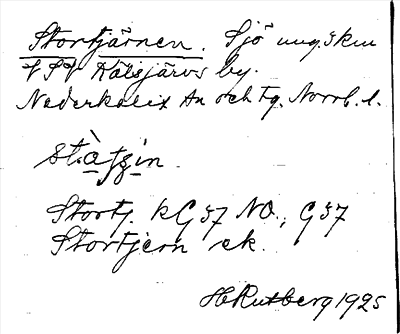 Stortjärnen. Sjö ung. 5 km
VSV Kälsjärvs by.
Nederkalix sn och tg. Norrb. l.
Stortj. kG 37 NO., G 37
Stortjern ek.
H Rutberg 1925